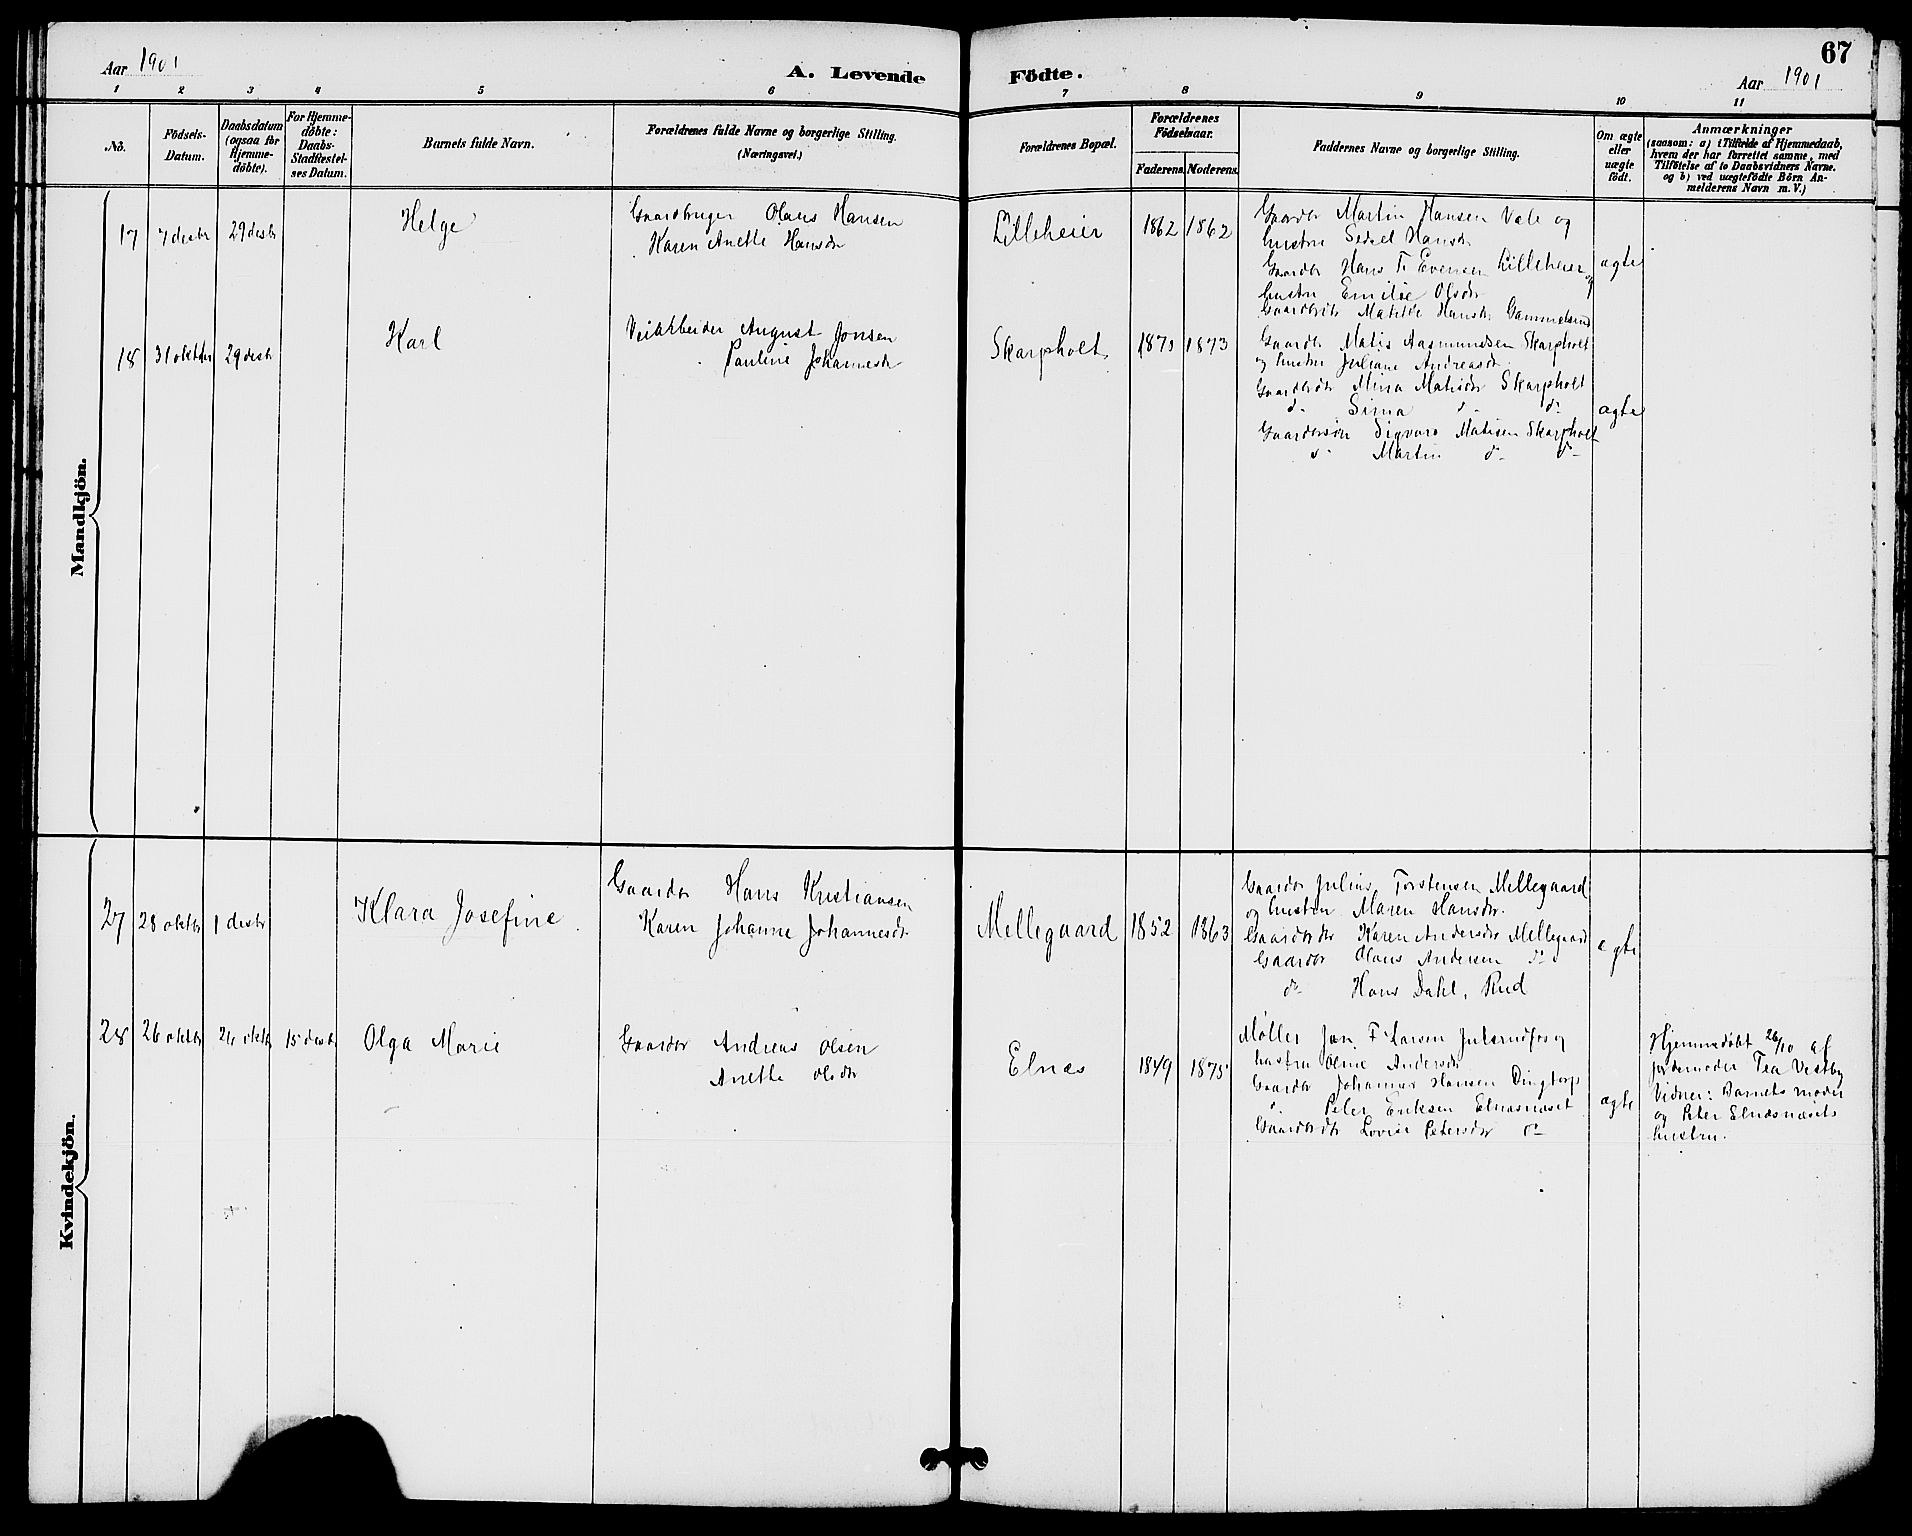 67
Aar 1901
A. Levende Födte.
Aar 1901
1 2 3 4 5 6 7 8 9 10 11
No.
Födsels-Datum.
Daabsdatum (ogsaa for Hjemme-döbte).
For Hjemme-döbte: Daabs-Stadfæstel-ses Datum.
Barnets fulde Navn.
Forældrenes fulde Navne og borgerlige Stilling.
(Næringsvei.)
Forældrenes Bopæl.
Forældrenes Födselsaar.
Faderens. Moderens.
Faddernes Navne og borgerlige Stilling.
Om ægte eller uægte födt.
Anmærkninger
(saasom: a) i Tilfælde af Hjemmedaab,
hvem der har forrettet samme, med
Tilföielse af to Daabsvidners Navne.
og b) ved uægtefödte Börn An-
melderens Navn m. V.)
Mandkjön.
17 7 desbr 29 desbr Helge
Gaardbruger Olaus Hansen
Karen Anette Hansdr
Lilleheier 1862 1862
Gaardbr Martin Hansen Vale og
hustru Sedsel Hansdr
Gaardbr Hans T. Evensen Lilleheier og
hustru Emilie Olsdr
Gaardbrdtr Matilde Hansdr Gammelsrud
ægte
18 31 oktbr 29 desbr Karl
Veiarbeider August Jonsen
Pauline Johannesdr
Skarpholt 1873
Gaardbr Matis Aasmundsen Skarpholt
og hustru Juliane Andreasdr
Gaardbrdtr Mina Matisdr Skarpholt
do Sina do do
Gaardbrsön Sigvart Matisen Skarpholt
do Martin do do
ægte
Kvindekjön.
27 28 oktbr 1 desbr Klara Josefine
Gaardbr Hans Kristiansen
Karen Johanne Johannesdr
Mellegaard 1852 1863
Gaardbr Julius Torstensen Mellegaard
og hustru Maren Hansdr.
Gaardbrdtr Karen Andersdr Mellegaard
Gaardbr Olaus Andersen do
do Hans Dahl, Rud
ægte
28 26 oktbr 26 oktbr 15 desbr Olga Marie
Gaardbr Andreas Olsen
Anette Olsdr
Elnæs 1849 1875
Møller F. Larsen og
hustru Oline Andersdr
Gaardbr Johannes Hansen Dingtorp
do Peter Eriksen Elnæsnæset
Gaardbrdtr Lovise Petersdr do
ægte
Hjemmedøbt 26/10 af
jordemoder Tea Vestby
Vidner: Barnets moder
og Peter Elnæsnæsets
hustru.